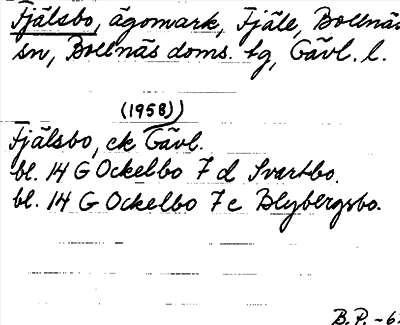 Fjälsbo, ägomark, Fjäle, Bollnäs
sn, Bollnäs doms. tg, Gävl. l.
(1958))
Fjälsbo, ek Gävl.
bl. 14 G Ockelbo 7 d Svartbo.
bl. 14 G Ockelbo 7 c Blybergsbo.
B.P. -67